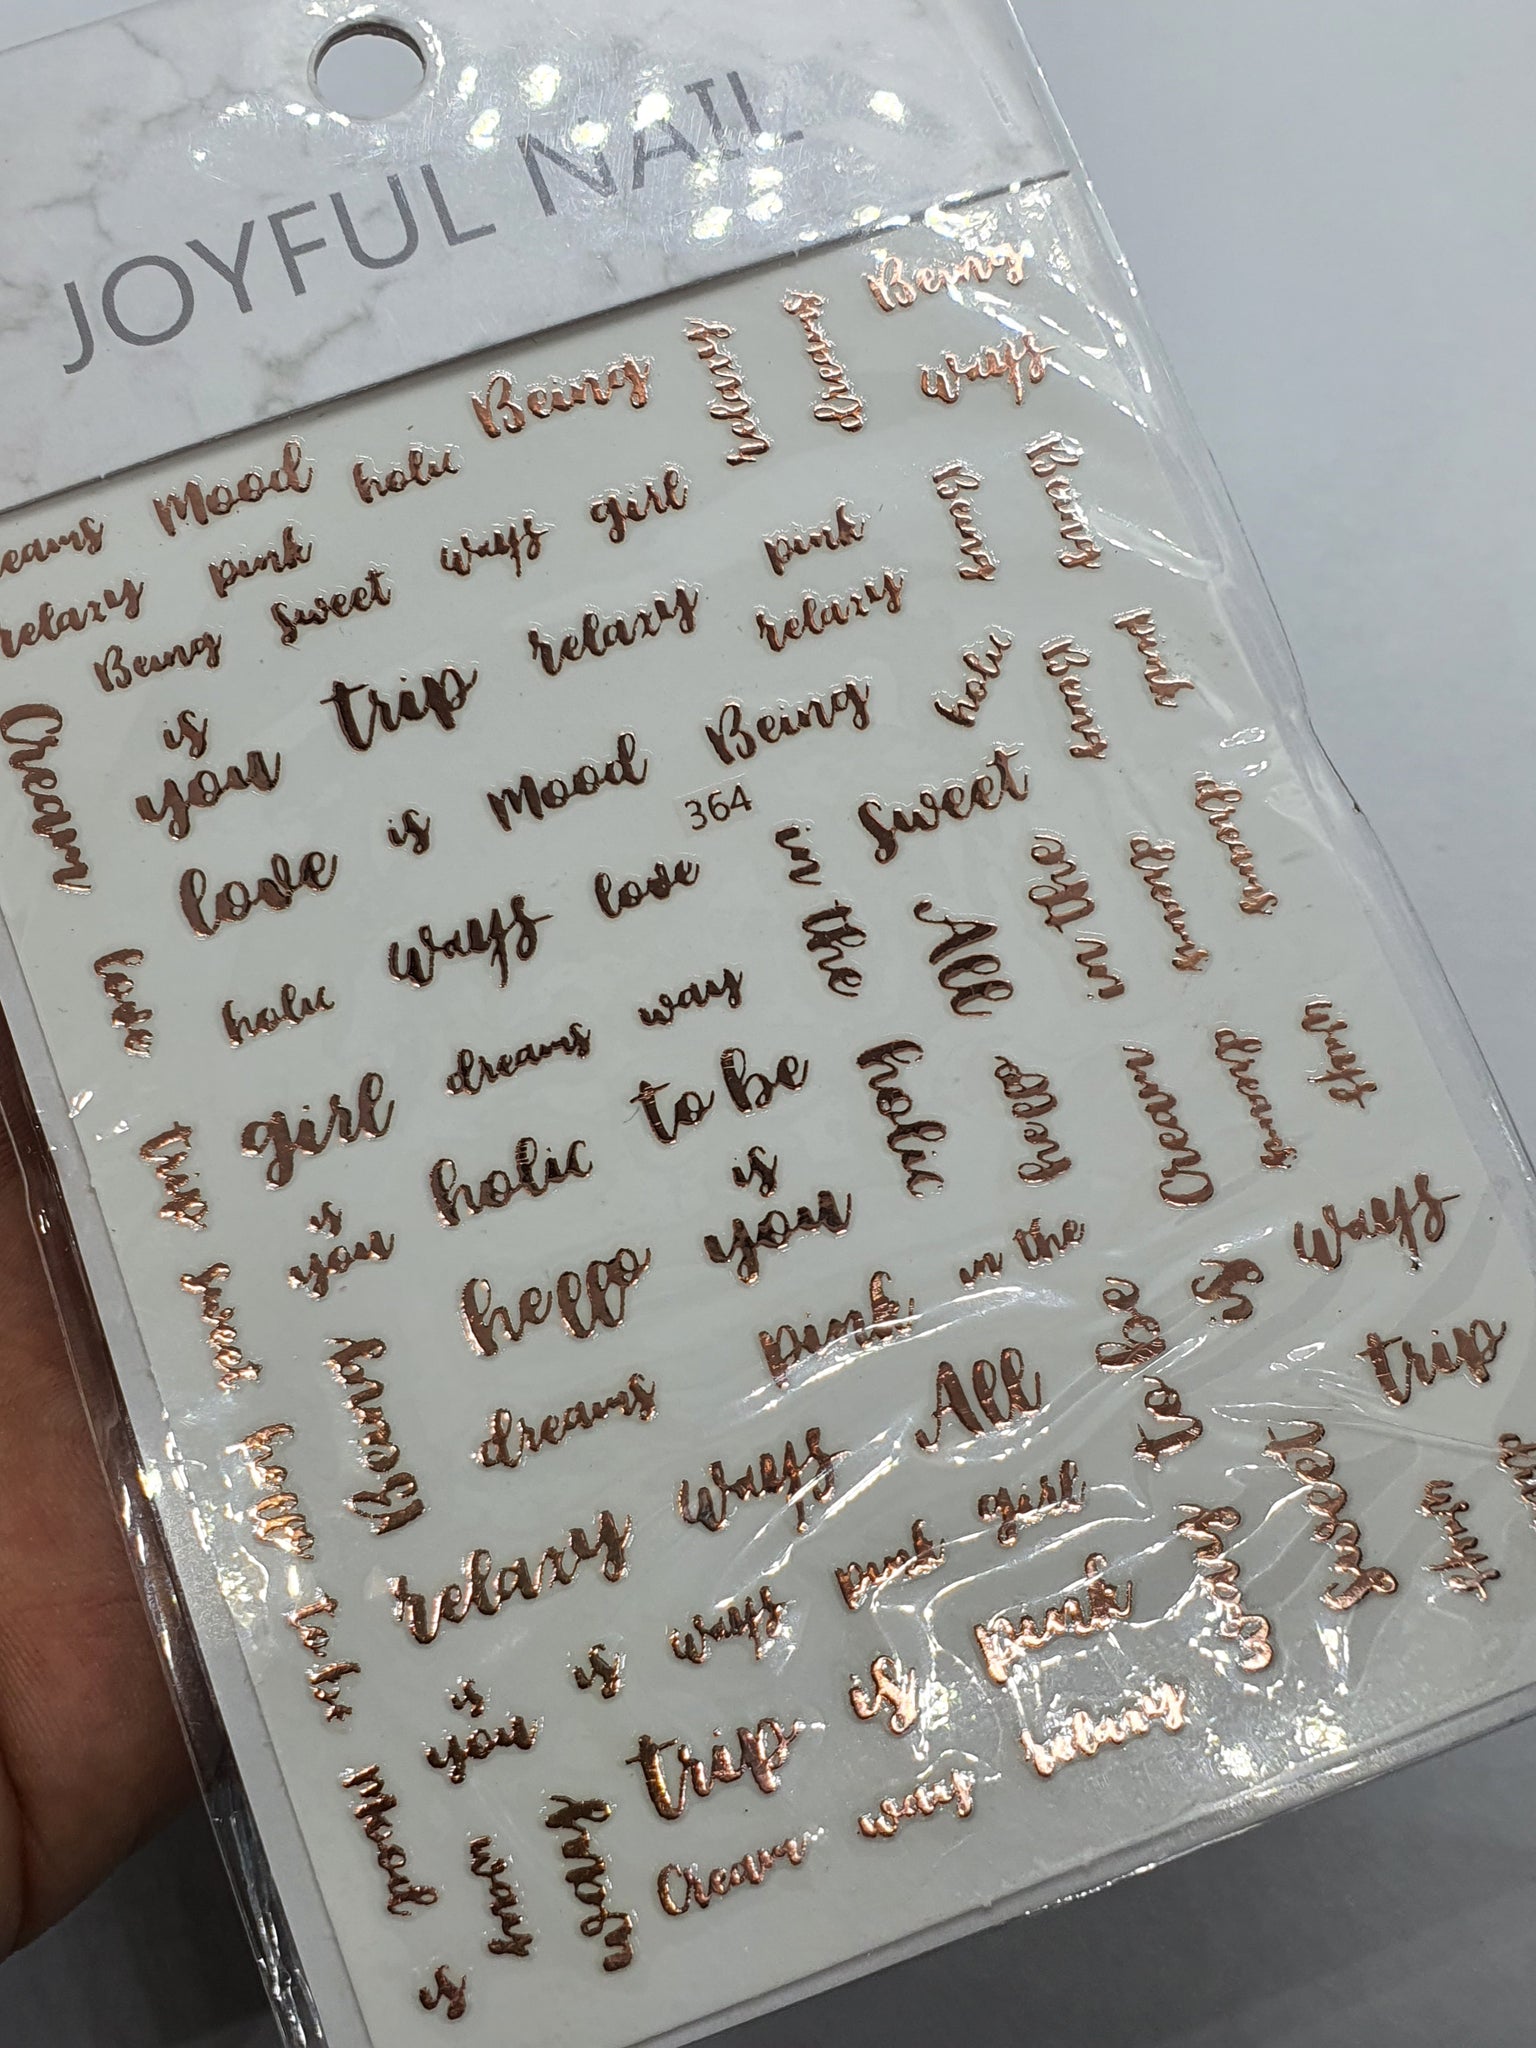 JOYFUL NAIL
Being
Being
relaxy
dreams
ways
Mood
holic
pink
ways
girl
relaxy
sweet
Being
pink
Being
Being
is
you
trip
relaxy
relaxy
holic
Being
pink
Cream
love
is
Mood
Being
364
sweet
dreams
love
holic
ways
love
in
the
All
in the
dreams
girl
dreams
way
to be
holic
hello
Cream
dreams
ways
trip
is
you
holic
is
you
in the
ways
sweet
Being
hello
pink
be
is
trip
dreams
All
to
hello
relaxy
ways
pink
girl
Being
sweet
ways
to be
is
you
is
ways
is
pink
Mood
way
relaxy
trip
Cream
way
relaxy
is